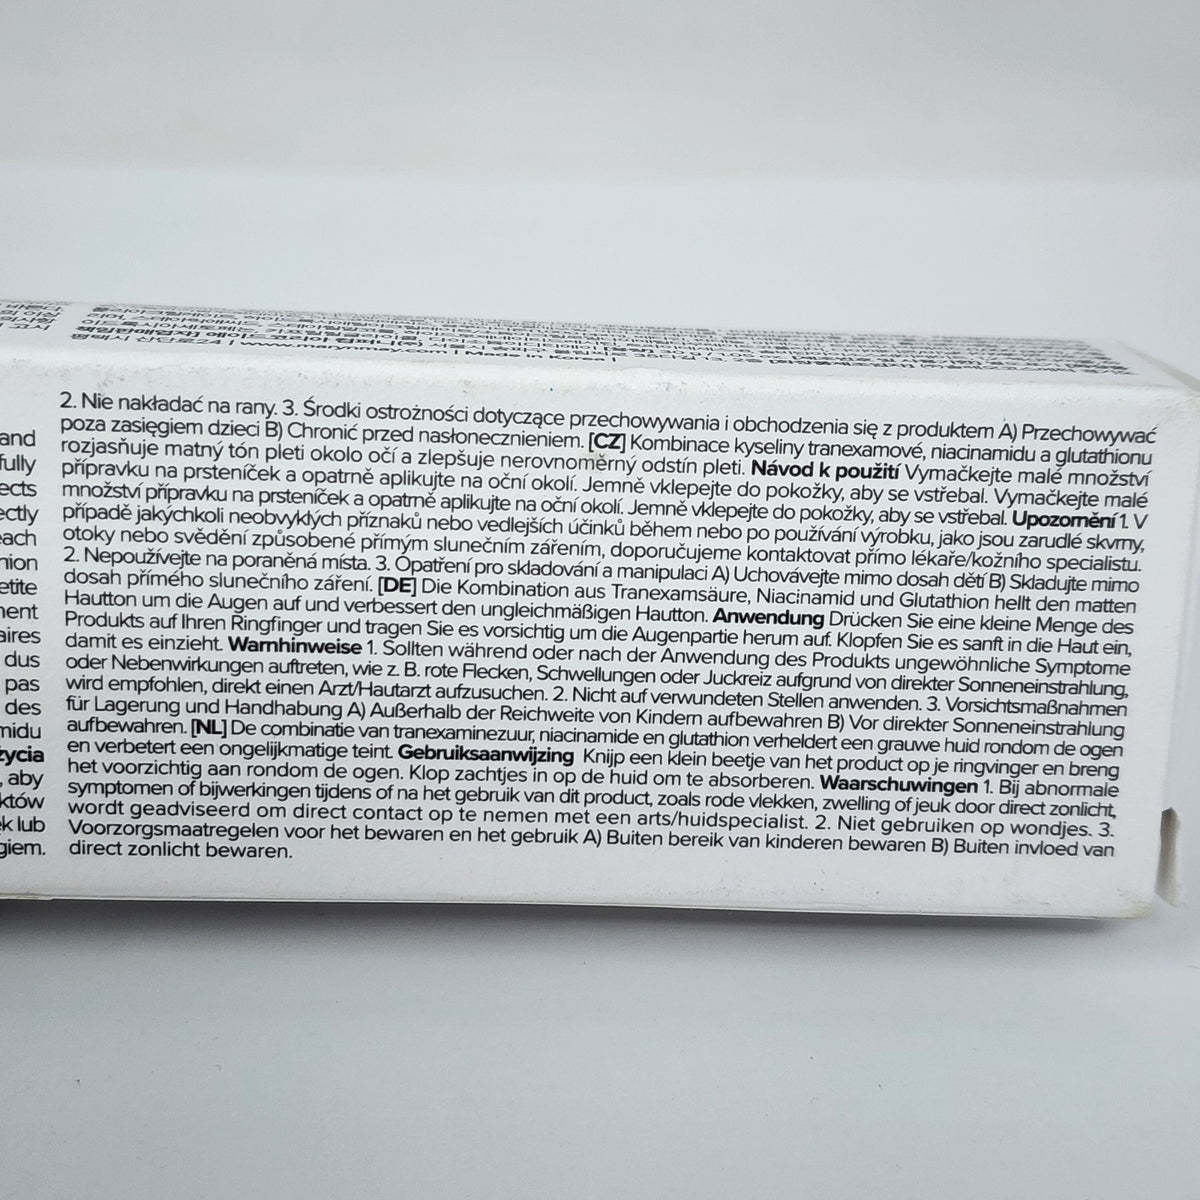 www.marynmay.com | Made in
and
fully
ects
ectly
each
nion
etite
ment
aires
dus
pas
des
midu
życia
, aby
któw
k lub
giem.
2. Nie nakładać na rany. 3. Środki ostrożności dotyczące przechowywania i obchodzenia się z produktem A) Przechowywać
poza zasięgiem dzieci B) Chronić przed nasłonecznieniem. [CZ] Kombinace kyseliny tranexamové, niacinamidu a glutathionu
rozjasňuje matný tón pleti okolo očí a zlepšuje nerovnoměrný odstín pleti. Návod k použití Vymačkejte malé množství
přípravku na prsteníček a opatrně aplikujte na oční okolí. Jemně vklepejte do pokožky, aby se vstřebal. Vymačkejte malé
množství přípravku na prsteníček a opatrně aplikujte na oční okolí. Jemně vklepejte do pokožky, aby se vstřebal. Upozornění 1. V
případě jakýchkoli neobvyklých příznaků nebo vedlejších účinků během nebo po používání výrobku, jako jsou zarudlé skvrny,
otoky nebo svědění způsobené přímým slunečním zářením, doporučujeme kontaktovat přímo lékaře/kožního specialistu.
2. Nepoužívejte na poraněná místa. 3. Opatření pro skladování a manipulaci A) Uchovávejte mimo dosah dětí B) Skladujte mimo
dosah přímého slunečního záření. [DE] Die Kombination aus Tranexamsäure, Niacinamid und Glutathion hellt den matten
Hautton um die Augen auf und verbessert den ungleichmäßigen Hautton. Anwendung Drücken Sie eine kleine Menge des
Produkts auf Ihren Ringfinger und tragen Sie es vorsichtig um die Augenpartie herum auf. Klopfen Sie es sanft in die Haut ein,
damit es einzieht. Warnhinweise 1. Sollten während oder nach der Anwendung des Produkts ungewöhnliche Symptome
oder Nebenwirkungen auftreten, wie z. B. rote Flecken, Schwellungen oder Juckreiz aufgrund von direkter Sonneneinstrahlung,
wird empfohlen, direkt einen Arzt/Hautarzt aufzusuchen. 2. Nicht auf verwundeten Stellen anwenden. 3. Vorsichtsmaßnahmen
für Lagerung und Handhabung A) Außerhalb der Reichweite von Kindern aufbewahren B) Vor direkter Sonneneinstrahlung
aufbewahren. [NL] De combinatie van tranexaminezuur, niacinamide en glutathion verheldert een grauwe huid rondom de ogen
en verbetert een ongelijkmatige teint. Gebruiksaanwijzing Knijp een klein beetje van het product op je ringvinger en breng
het voorzichtig aan rondom de ogen. Klop zachtjes in op de huid om te absorberen. Waarschuwingen 1. Bij abnormale
symptomen of bijwerkingen tijdens of na het gebruik van dit product, zoals rode vlekken, zwelling of jeuk door direct zonlicht,
wordt geadviseerd om direct contact op te nemen met een arts/huidspecialist. 2. Niet gebruiken op wondjes. 3.
Voorzorgsmaatregelen voor het bewaren en het gebruik A) Buiten bereik van kinderen bewaren B) Buiten invloed van
direct zonlicht bewaren.